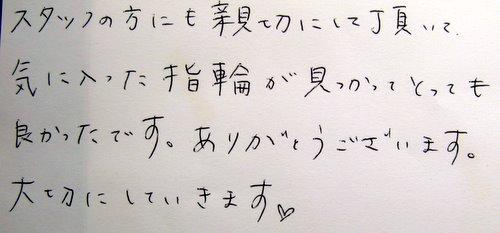 スタッフの方にも親切にして頂いて、
気に入った指輪が見つかってとっても
良かったです。ありがとうございます。
大切にしていきます♡